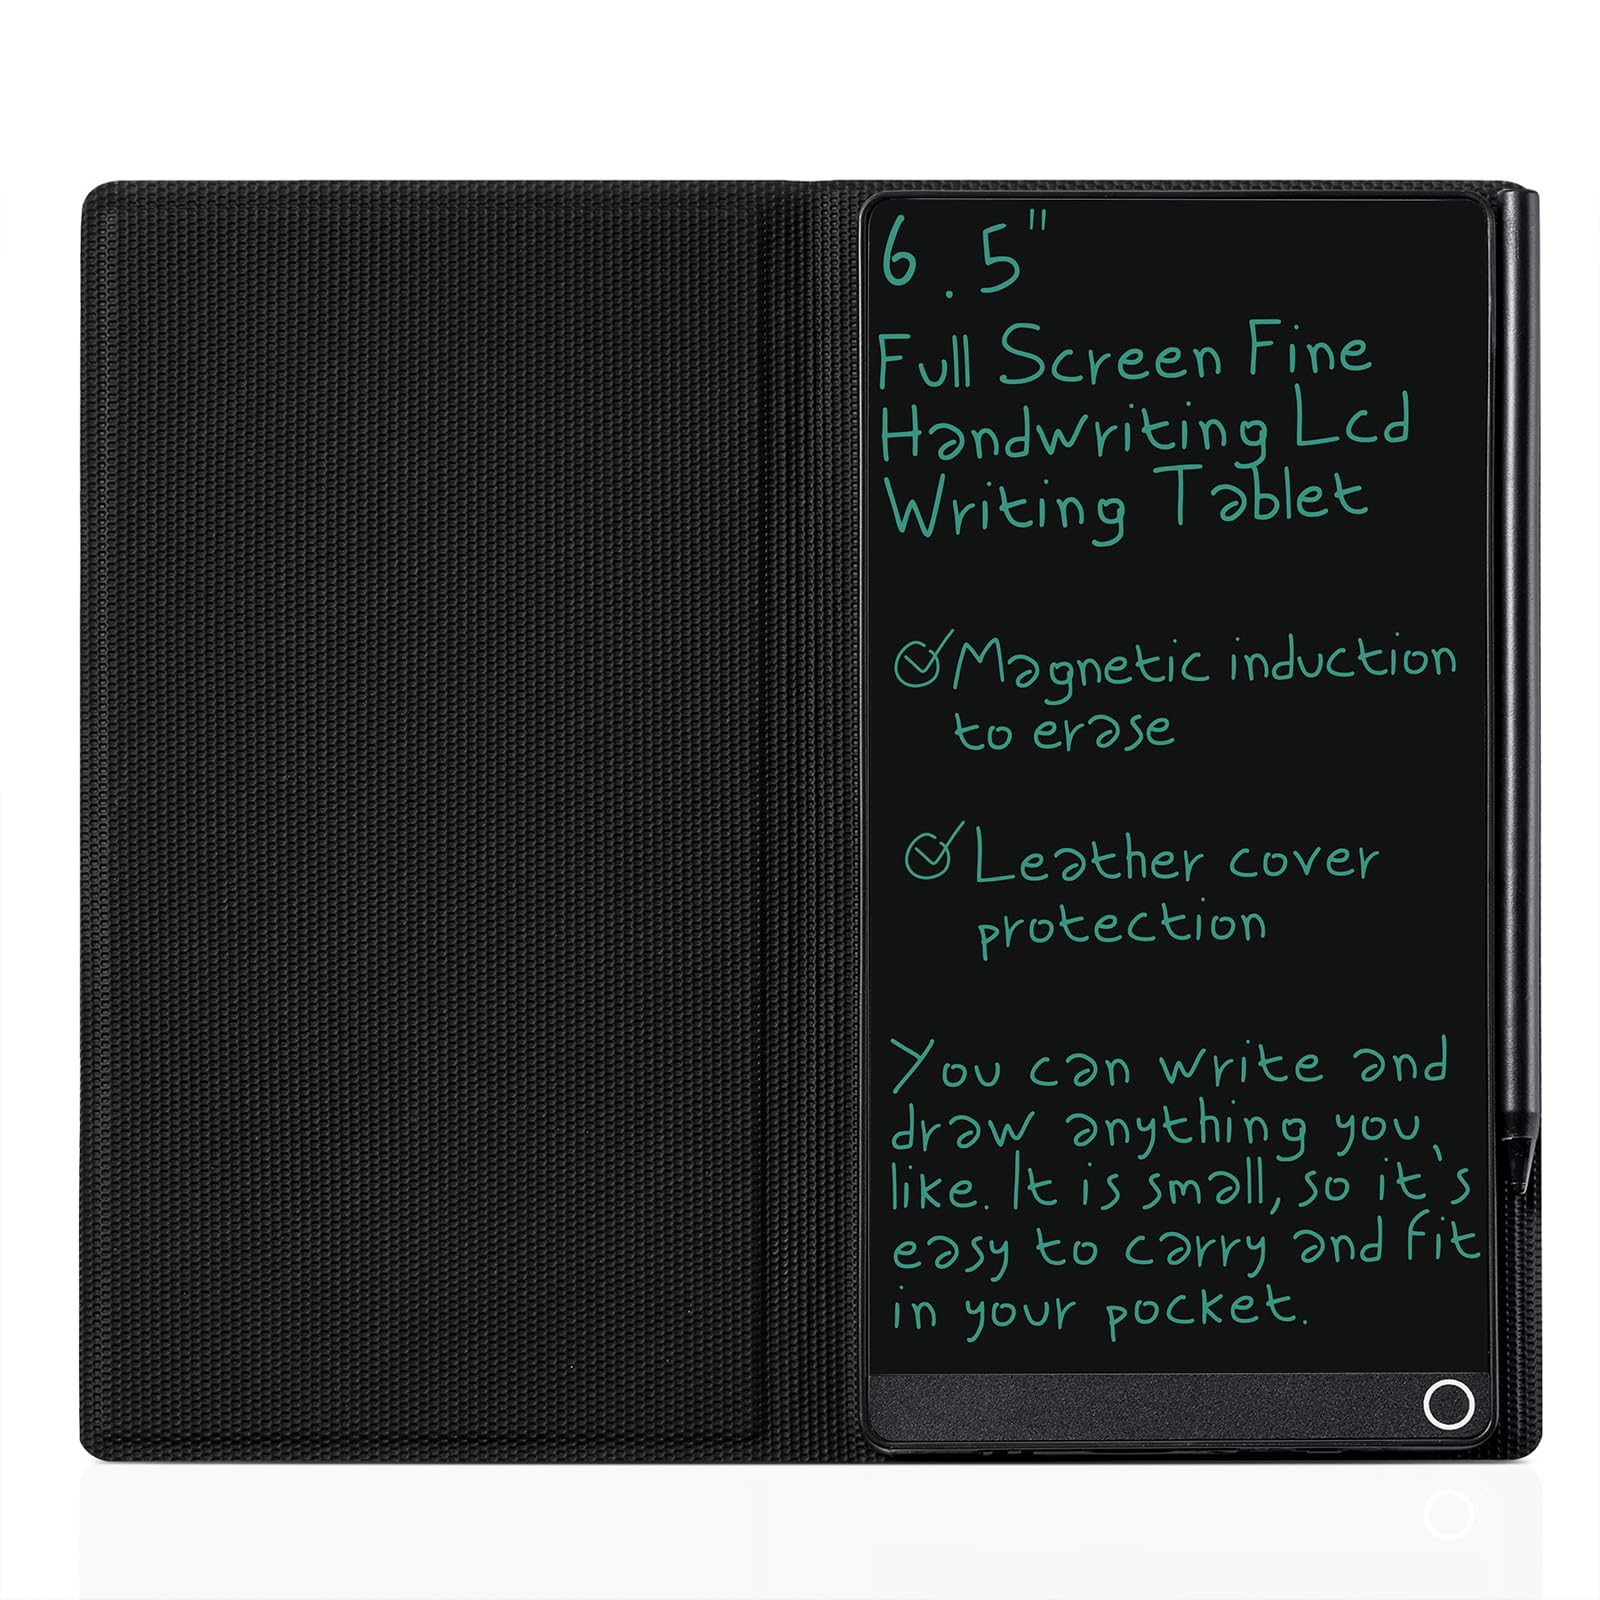 6.5"
Full Screen Fine
Handwriting Lcd
Writing Tablet
Magnetic induction
to erase
Leather cover
protection
You can write and
draw anything you
like. It is small, so it's
easy to carry and fit
in your pocket.